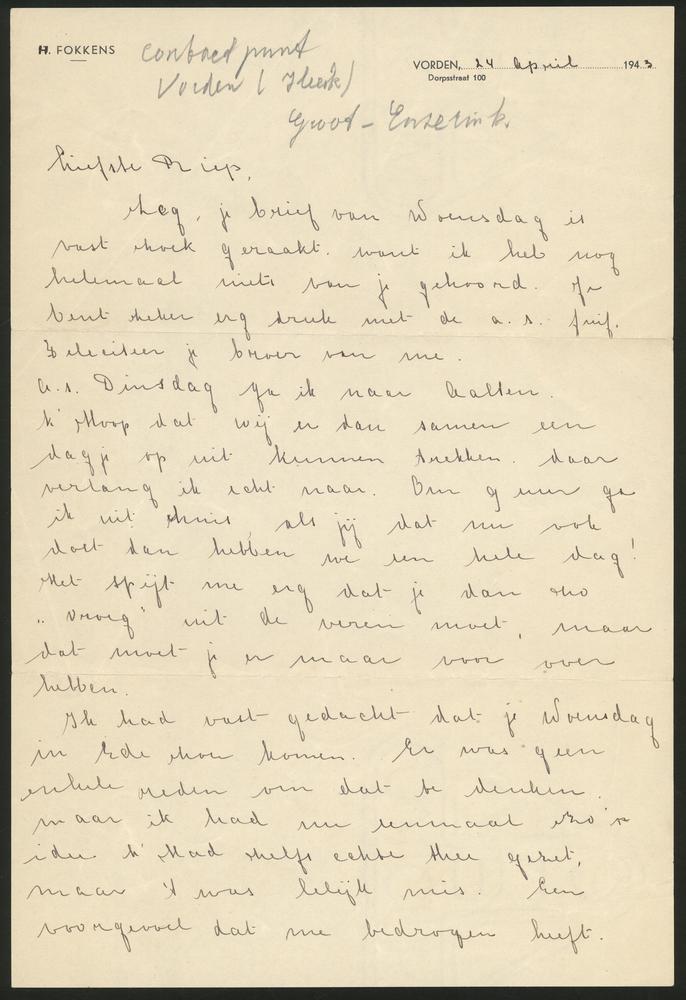 H. FOKKENS
VORDEN, 24 April 1943
Dorpsstraat 100
contact punt
Vorden
Groot - Enzerink.
Liefste Riep,
Zeg, je brief van Woensdag is
vast zoek geraakt. want ik heb nog
helemaal niets van je gehoord. Je
bent zeker erg druk met de a. s. fuif.
Feliciteer je broer van me.
a.s. Dinsdag ga ik naar Aalten.
k' Hoop dat wij er dan samen een
dagje op uit kunnen trekken. daar
verlang ik echt naar. Om 9 uur ga
ik uit huis, als jij dat nu ook
doet dan hebben we een hele dag!
Het spijt me erg dat je dan zo
„vroeg" uit de veren moet, maar
dat moet je er maar voor over
hebben.
Ik had vast gedacht dat je Woensdag
in Ede zou komen. Er was geen
enkele reden om dat te denken.
maar ik had nu eenmaal zo'n
idee. k' Had zelfs echte thee gezet,
maar 't was lelijk mis. Een
voorgevoel dat me bedrogen heeft.